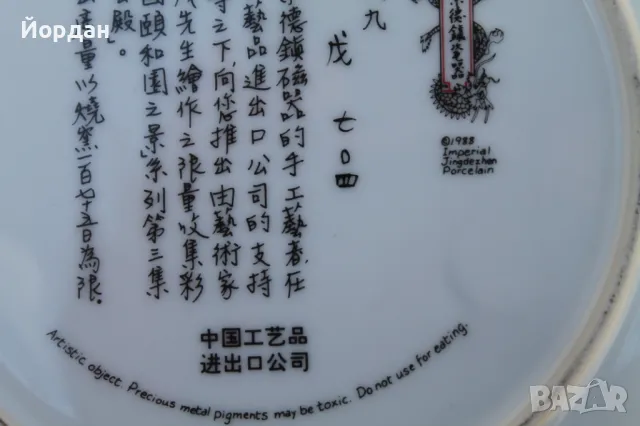 Йордан
九
戊 七〇四
景德鎮瓷器
©1988
Imperial
Jingdezhen
Porcelain
德鎮磁器的手工藝者,在
藝品進出口公司的支持
之下,向您推出由藝術家
先生繪作之限量收集彩
國頤和園之景」系列第三集
殿」。
量以燒窯一百七十五日為限。
中国工艺品
进出口公司
Artistic object. Precious metal pigments may be toxic. Do not use for eating.
BAZAR